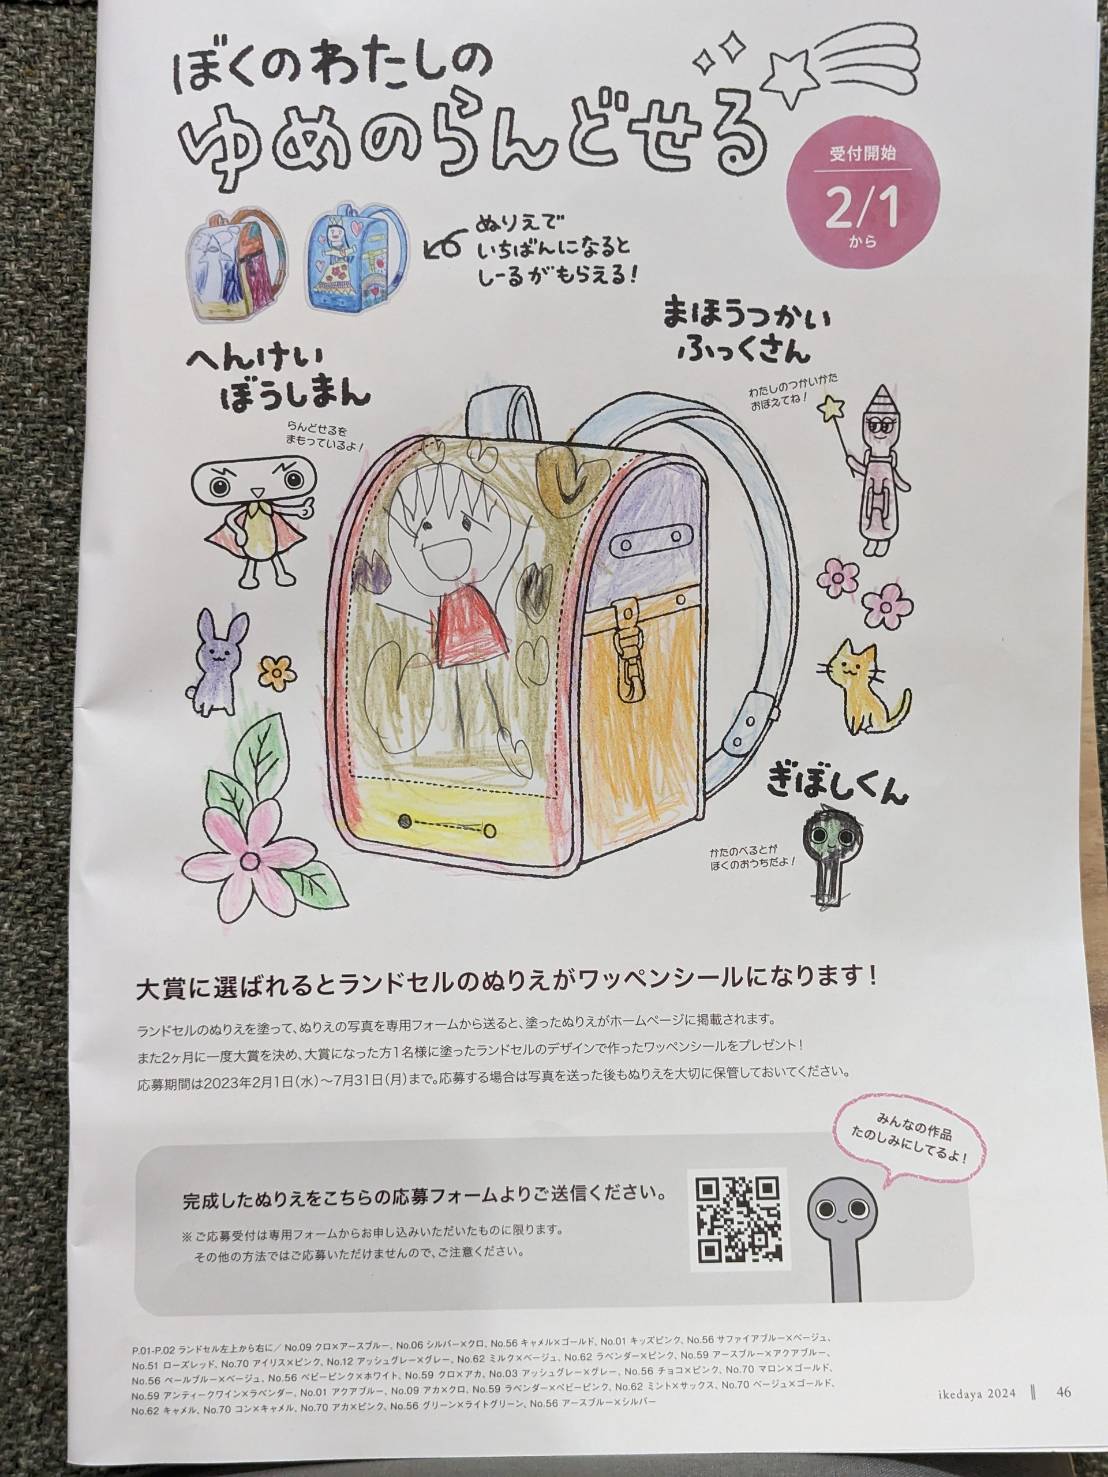 ぼくのわたしの
ゆめのらんどせる
受付開始
2/1
から
ぬりえで
いちばんになると
しーるがもらえる!
まほうつかい
ふっくさん
わたしのつかいかた
おぼえてね!
へんけい
ぼうしまん
らんどせるを
まもっているよ!
ぎぼしくん
かたのべるとが
ぼくのおうちだよ!
大賞に選ばれるとランドセルのぬりえがワッペンシールになります!
ランドセルのぬりえを塗って、ぬりえの写真を専用フォームから送ると、塗ったぬりえがホームページに掲載されます。
また2ヶ月に一度大賞を決め、大賞になった方1名様に塗ったランドセルのデザインで作ったワッペンシールをプレゼント!
応募期間は2023年2月1日(水)〜7月31日(月)まで。応募する場合は写真を送った後もぬりえを大切に保管しておいてください。
みんなの作品
たのしみにしてるよ!
完成したぬりえをこちらの応募フォームよりご送信ください。
※ご応募受付は専用フォームからお申し込みいただいたものに限ります。
その他の方法ではご応募いただけませんので、ご注意ください。
P.01-P.02 ランドセル左上から右に/ No.09 クロ×アースブルー、No.06 シルバー×クロ、No.56 キャメル×ゴールド、No.01 キッズピンク、No.56 サファイアブルー×ベージュ、
No.51 ローズレッド、No.70 アイリス×ピンク、No.12 アッシュグレー×グレー、No.62 ミルク×ベージュ、No.62 ラベンダー×ピンク、No.59 アースブルー×アクアブルー、
No.56 ペールブルー×ベージュ、No.56 ベビーピンク×ホワイト、No.59 クロ×アカ、No.03 アッシュグレー×グレー、No.56 チョコ×ピンク、No.70 マロン×ゴールド、
No.59 アンティークワイン×ラベンダー、No.01 アクアブルー、No.09 アカ×クロ、No.59 ラベンダー×ベビーピンク、No.62 ミント×サックス、No.70 ベージュ×ゴールド、
No.62 キャメル、No.70 コン×キャメル、No.70 アカ×ピンク、No.56 グリーン×ライトグリーン、No.56 アースブルー×シルバー
ikedaya 2024 46